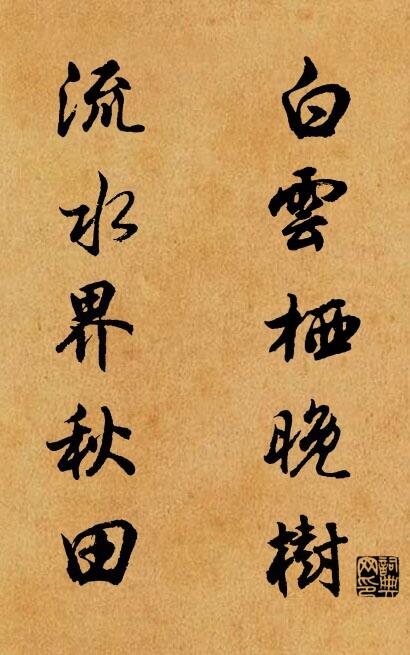 白雲栖晚樹
流水界秋田
詞典網印